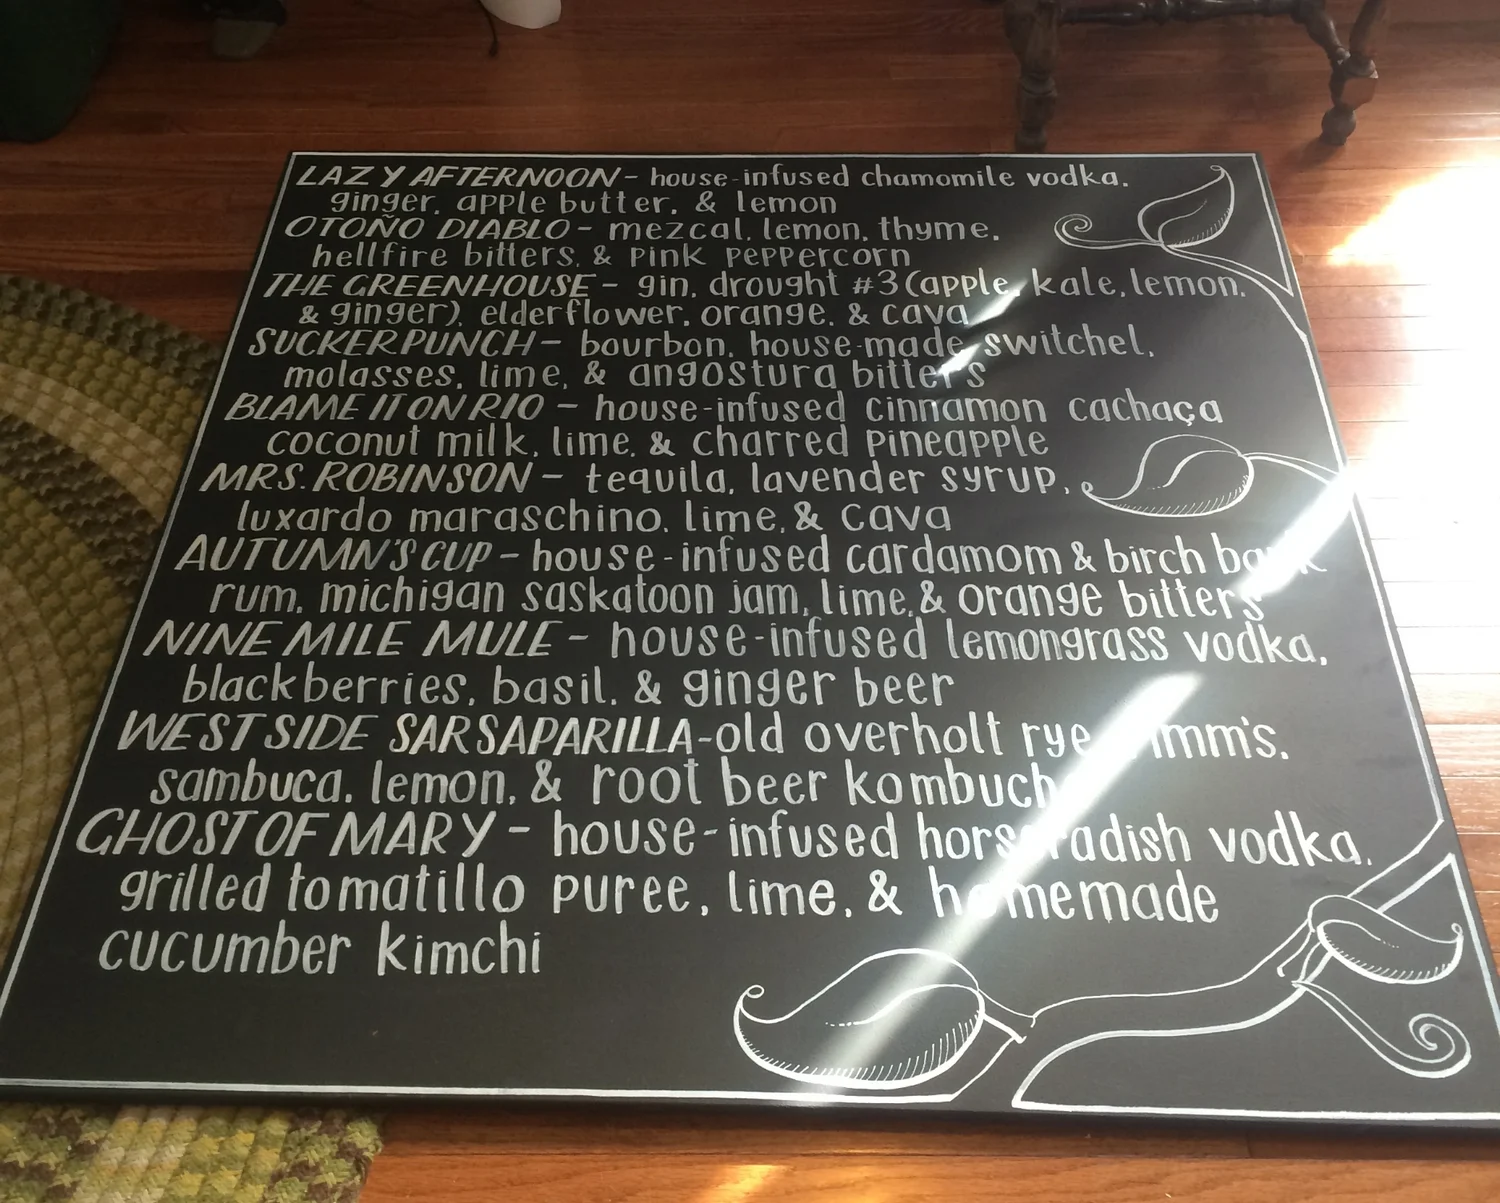 LAZY AFTERNOON - house-infused chamomile vodka,
ginger, apple butter, & lemon
OTOÑO DIABLO - mezcal, lemon, thyme,
hellfire bitters, & pink peppercorn
THE GREENHOUSE - gin, drought #3 (apple, kale, lemon,
& ginger), elderflower, orange, & cava
SUCKERPUNCH - bourbon, house-made switchel,
molasses, lime, & angostura bitters
BLAME IT ON RIO - house-infused cinnamon cachaça
coconut milk, lime, & charred pineapple
MRS. ROBINSON - tequila, lavender syrup,
luxardo maraschino, lime, & cava
AUTUMN'S CUP - house-infused cardamom & birch bark
rum, michigan saskatoon jam, lime, & orange bitters
NINE MILE MULE - house-infused lemongrass vodka,
blackberries, basil, & ginger beer
WEST SIDE SARSAPARILLA - old overholt rye,
sambuca, lemon, & root beer kombucha
GHOST OF MARY - house-infused horseradish vodka,
grilled tomatillo puree, lime, & homemade
cucumber kimchi